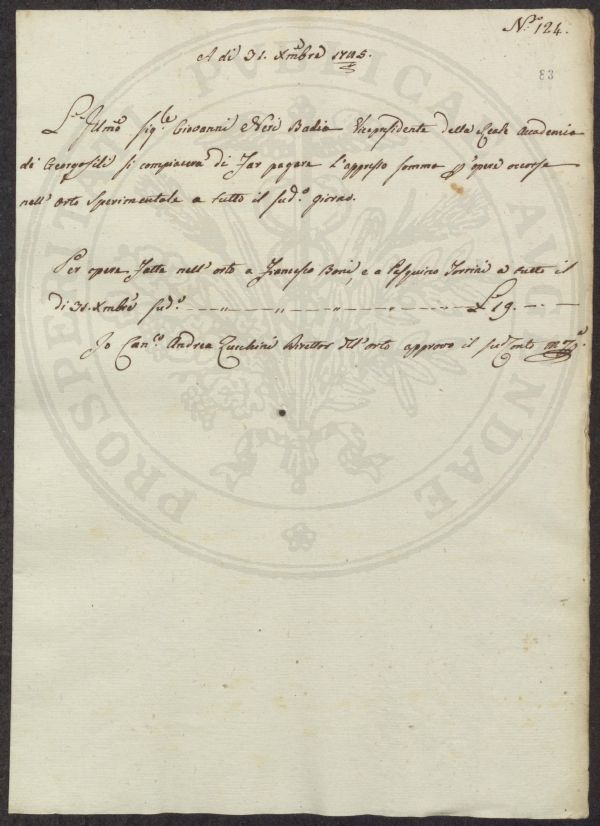 N.º 124.
A di 31. Xmbre 1785.
83
L'Illmo Sig.re Giovanni Neri Badia Vicepresidente della Reale Accademia
di Georgofili si compiacerà di far pagare l'appresso somma p opere occorse
nell'orto Sperimentale a tutto il sud.º giorno.
Per opere fatte nell'orto a Francesco Boni, e a Pasquino Torrini a tutto il
di 31. Xmbre sud.º — „ — „ — „ — L 19. — —
Io Can.co Andrea Zucchini Direttor dell'orto approvo il sud. Conto mp.º
PROSPERITATI PUBLICAE AUGENDAE